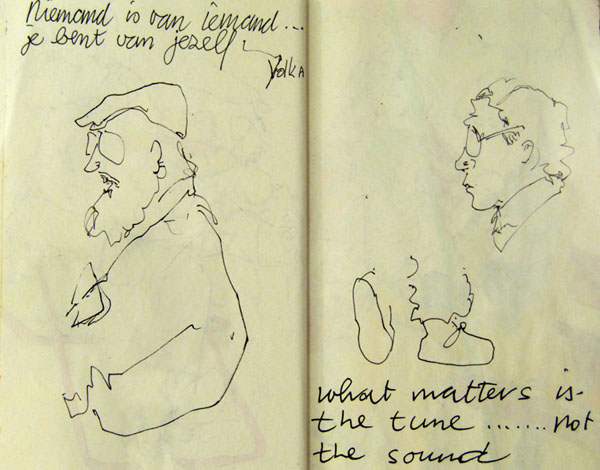 Niemand is van iemand...
je bent van jezelf
Volka
what matters is
the tune ....... not
the sound